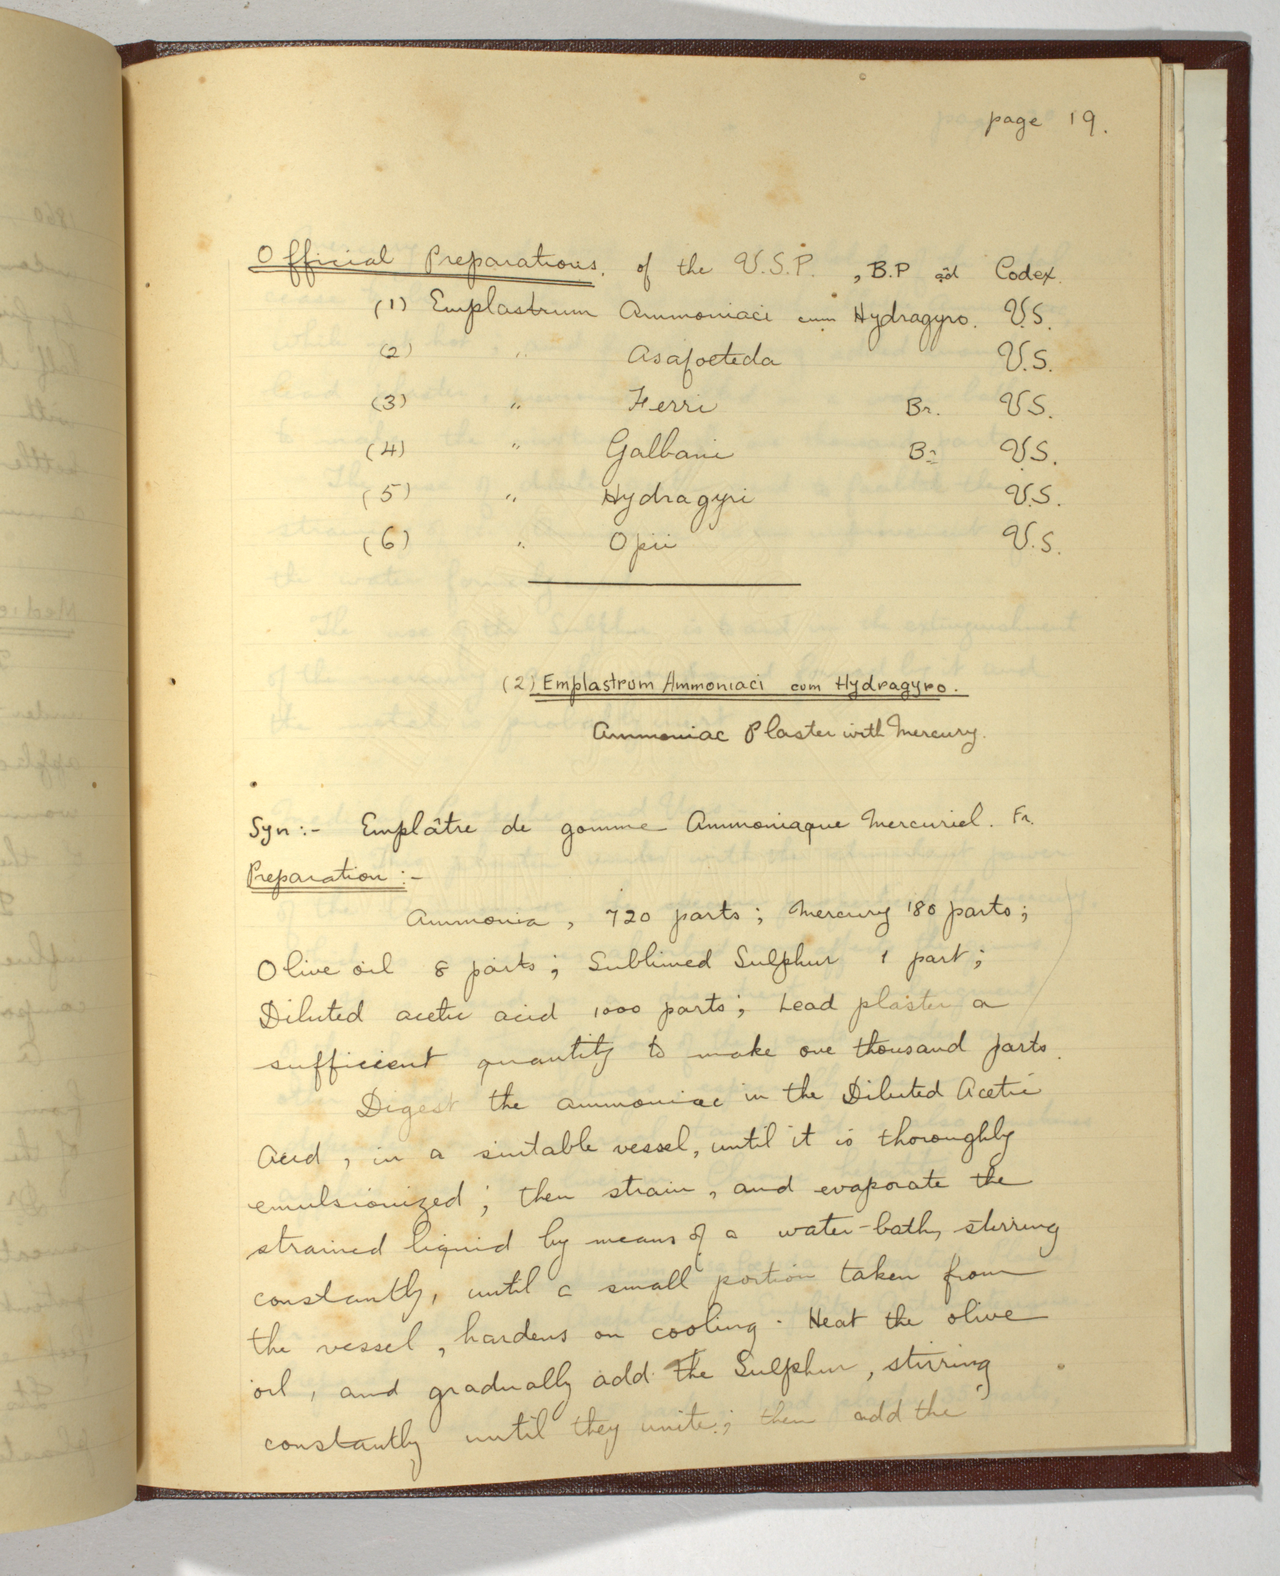 page 19.
Official Preparations. of the U.S.P. , B.P and Codex.
(1) Emplastrum Ammoniaci cum Hydragyro. U.S.
(2) " Asafoetida U.S.
(3) " Ferri Br. U.S.
(4) " Galbani Br. U.S.
(5) " Hydragyri U.S.
(6) " Opii U.S.
(2) Emplastrum Ammoniaci cum Hydragyro.
Ammoniac Plaster with Mercury.
Syn:- Emplâtre de gomme Ammoniaque Mercuriel. Fr.
Preparation:-
Ammonia, 720 parts; Mercury 180 parts;
Olive oil 8 parts; Sublimed Sulphur 1 part;
Diluted acetic acid 1000 parts; Lead plaster a
sufficient quantity to make one thousand parts.
Digest the ammoniac in the Diluted Acetic
Acid, in a suitable vessel, until it is thoroughly
emulsionized; then strain, and evaporate the
strained liquid by means of a water-bath, stirring
constantly, until a small portion taken from
the vessel, hardens on cooling. Heat the olive
oil, and gradually add the Sulphur, stirring
constantly until they unite; then add the